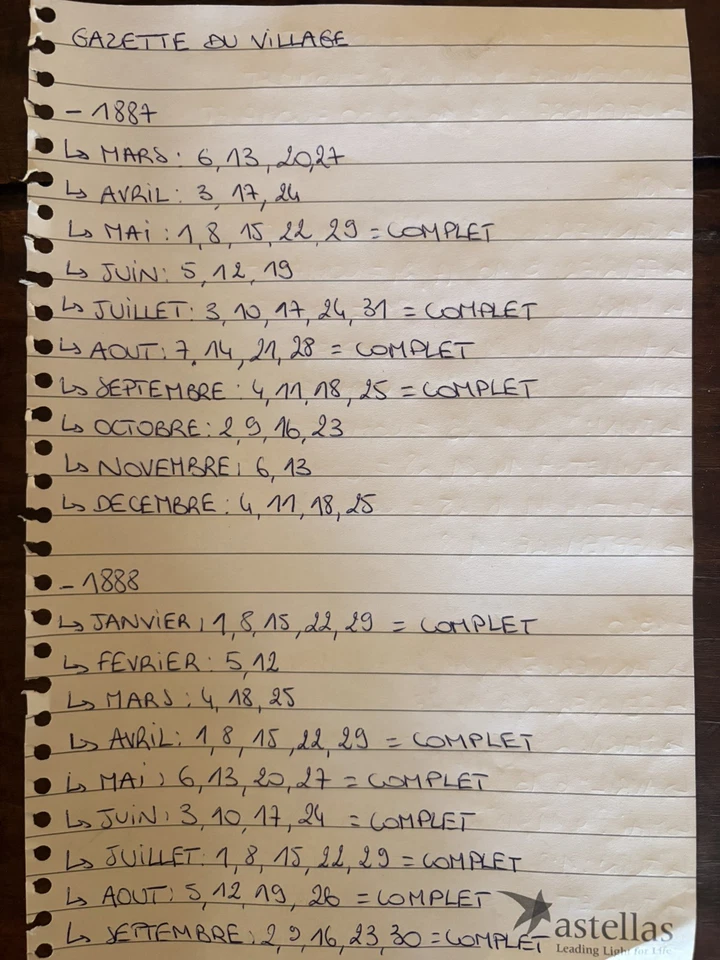 GAZETTE DU VILLAGE
- 1887
↳ MARS : 6, 13, 20, 27
↳ AVRIL : 3, 17, 24
↳ MAI : 1, 8, 15, 22, 29 = COMPLET
↳ JUIN : 5, 12, 19
↳ JUILLET : 3, 10, 17, 24, 31 = COMPLET
↳ AOUT : 7, 14, 21, 28 = COMPLET
↳ SEPTEMBRE : 4, 11, 18, 25 = COMPLET
↳ OCTOBRE : 2, 9, 16, 23
↳ NOVEMBRE : 6, 13
↳ DECEMBRE : 4, 11, 18, 25
- 1888
↳ JANVIER : 1, 8, 15, 22, 29 = COMPLET
↳ FEVRIER : 5, 12
↳ MARS : 4, 18, 25
↳ AVRIL : 1, 8, 15, 22, 29 = COMPLET
↳ MAI : 6, 13, 20, 27 = COMPLET
↳ JUIN : 3, 10, 17, 24 = COMPLET
↳ JUILLET : 1, 8, 15, 22, 29 = COMPLET
↳ AOUT : 5, 12, 19, 26 = COMPLET
↳ SEPTEMBRE : 2, 9, 16, 23, 30 = COMPLET
astellas
Leading Light for Life